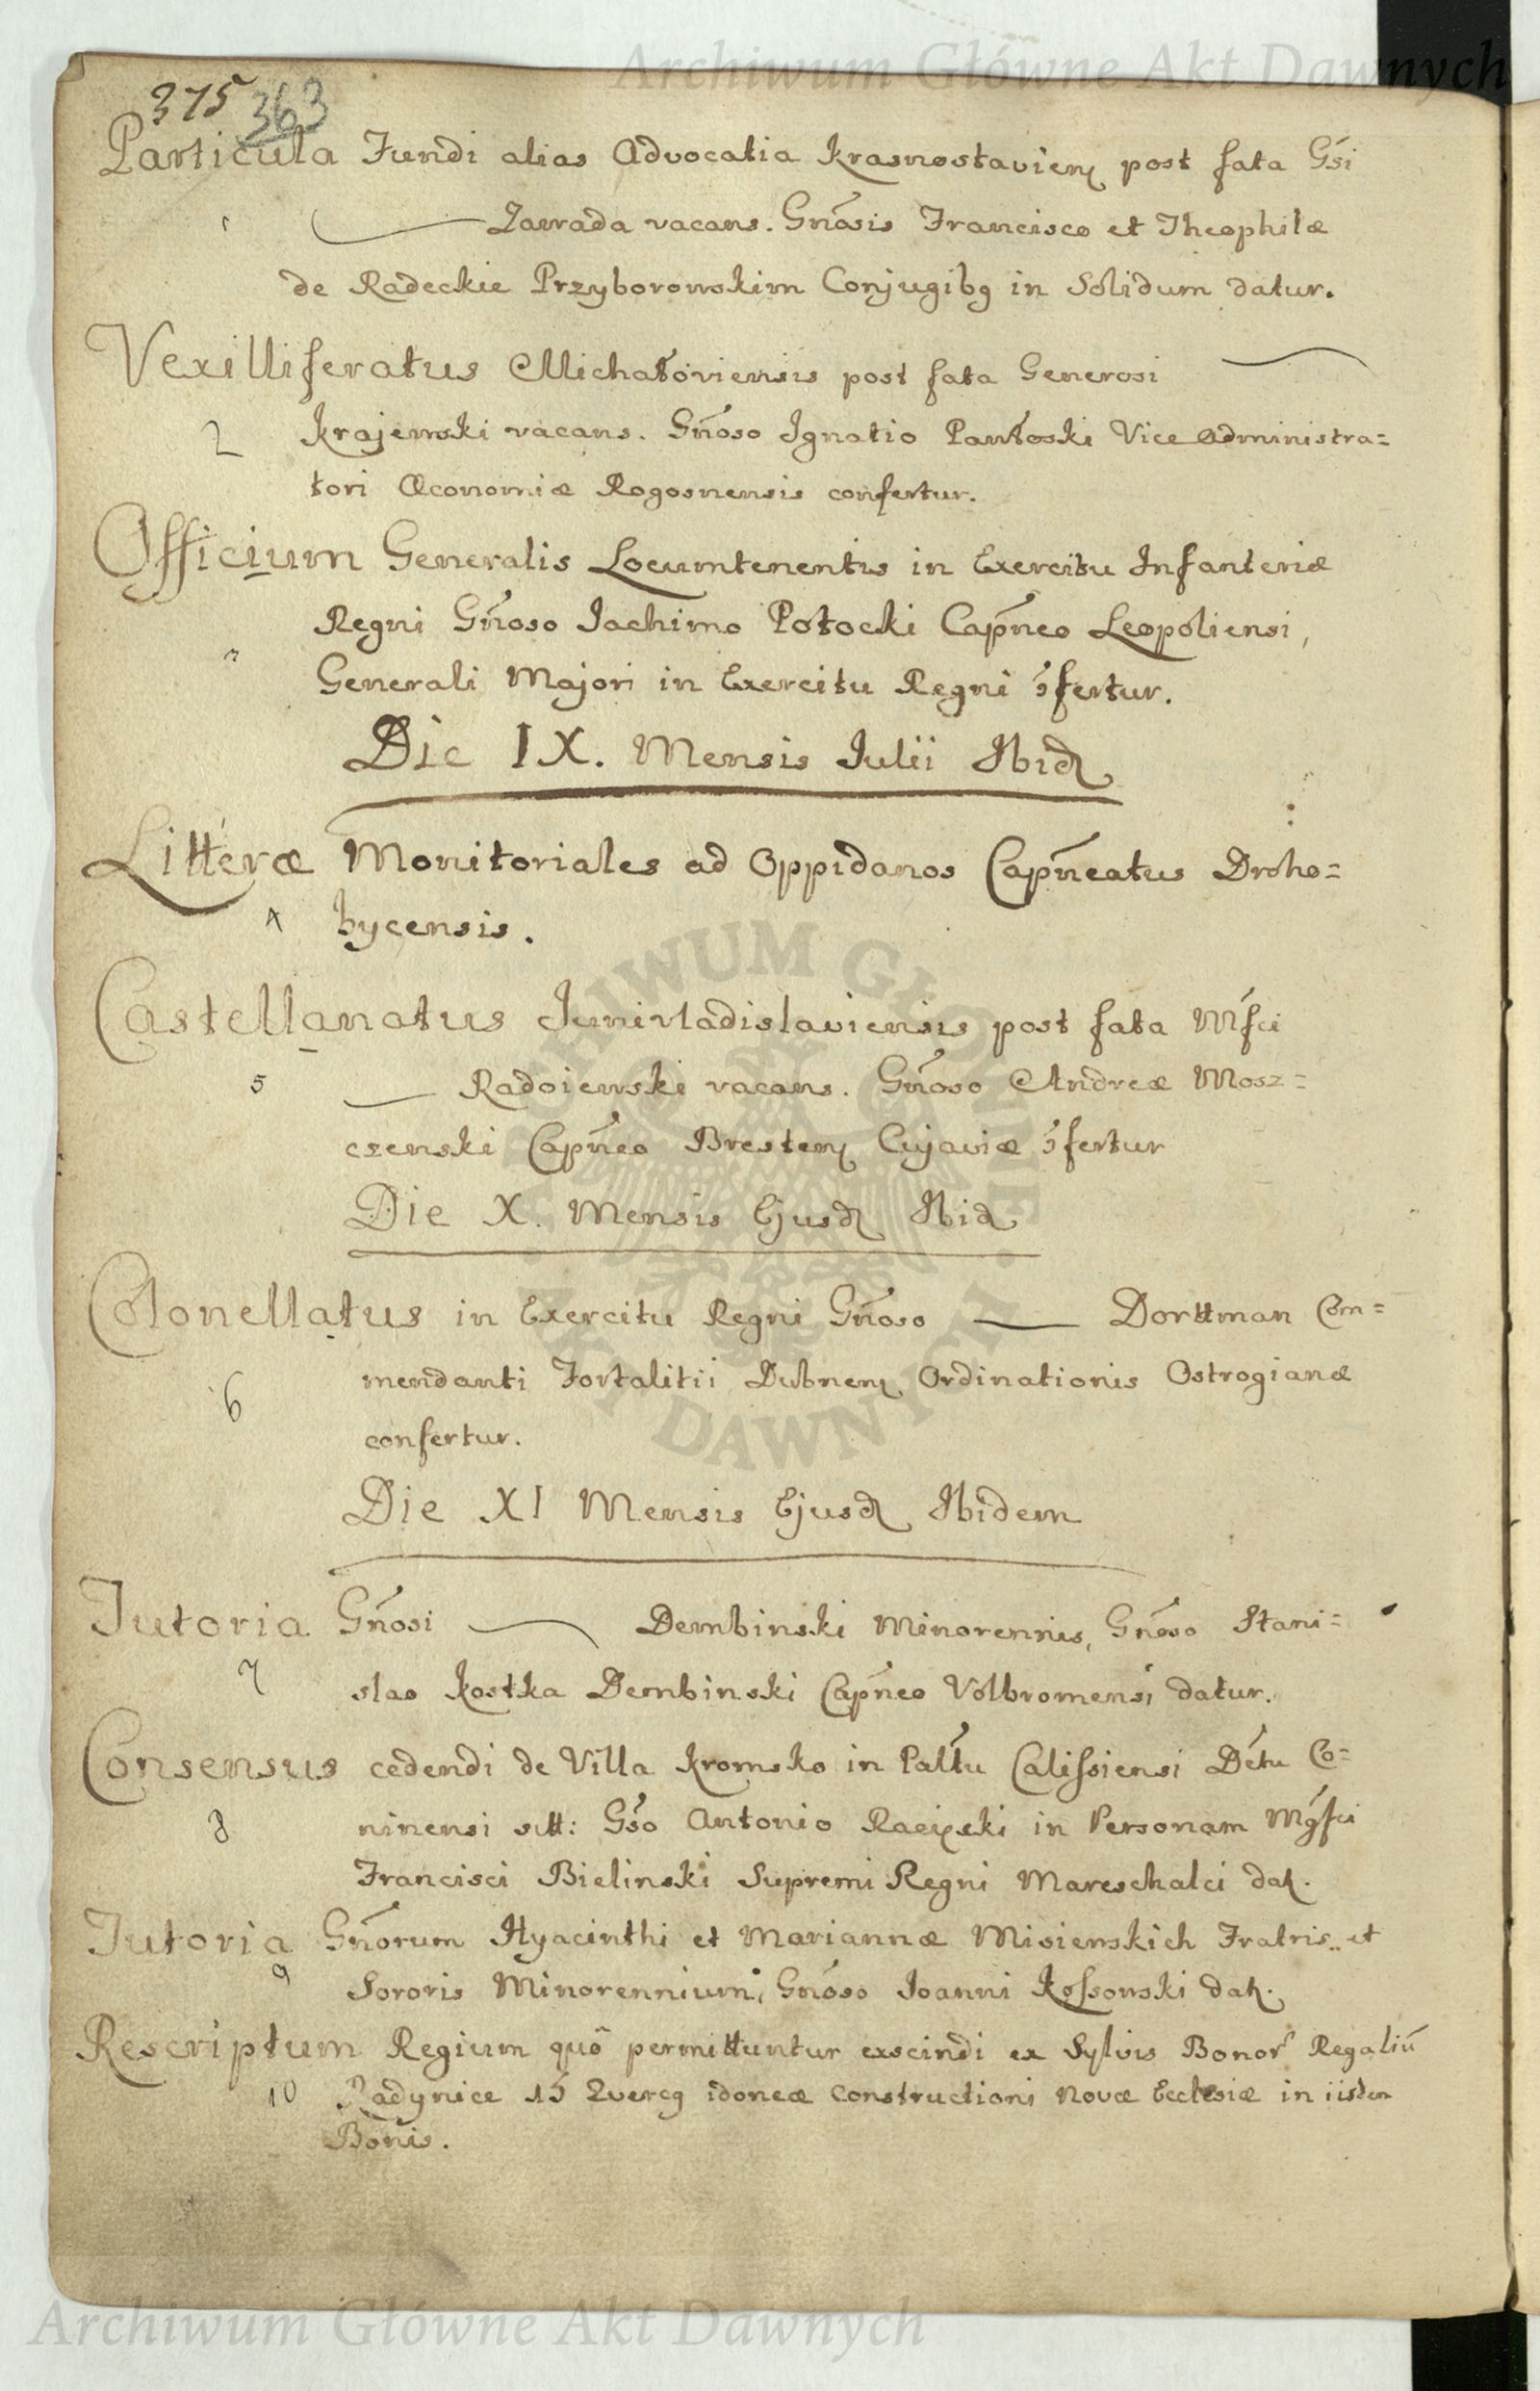 Archiwum Główne Akt Dawnych
375 363
Particula Fundi alias Advocatia Krasnostavien. post fata Gsi
1 — Zawada vacans. Gnosis Francisco et Theophilæ
de Radeckie Przyborowskim Conjugibg in Solidum datur.
Vexilliferatus Michałoviensis post fata Generosi —
2 Krajewski vacans. Gnoso Ignatio Pawłoski Vice Administra=
tori Œconomiæ Rogosnensis confertur.
Officium Generalis Locumtenentis in Exercitu Infanteriæ
Regni Gnoso Joachimo Potocki Capneo Leopoliensi,
Generali Majori in Exercitu Regni ɔfertur.
Die IX. Mensis Julii Ibid
Litteræ Monitoriales ad Oppidanos Capneatus Droho=
4 bycensis.
Castellanatus Junivladislaviensis post fata Mfci
5 — Radojewski vacans. Gnoso Andreæ Mosz=
czenski Capneo Bresten Cujaviæ ɔfertur
Die X. Mensis Ejusd Ibid
Colonellatus in Exercitu Regni Gnoso — Dorttman Com=
6 mendanti Fortalitii Dubnen Ordinationis Ostrogianæ
confertur.
Die XI Mensis Ejusd Ibidem
Tutoria Gnosi — Dembinski Minorennis, Gnoso Stani=
7 slao Kostka Dembinski Capneo Volbromensi datur.
Consensus cedendi de Villa Kromsko in Paltu Calissiensi Dctu Co=
8 ninensi sitt: Gso Antonio Raczyski in Personam Mgfci
Francisci Bielinski Supremi Regni Mareschalci dat.
Tutoria Gnorum Hyacinthi et Mariannæ Misiewskich Fratris et
9 Sororis Minorennium, Gnoso Joanni Kossowski dat.
Rescriptum Regium quo permittuntur exscindi ex Sylvis Bonor Regaliū
10 Radynice 15 Quercg idoneæ Constructioni Novæ Ecclesiæ in iisdem
Bonis.
ARCHIWUM GŁÓWNE AKT DAWNYCH
Archiwum Główne Akt Dawnych